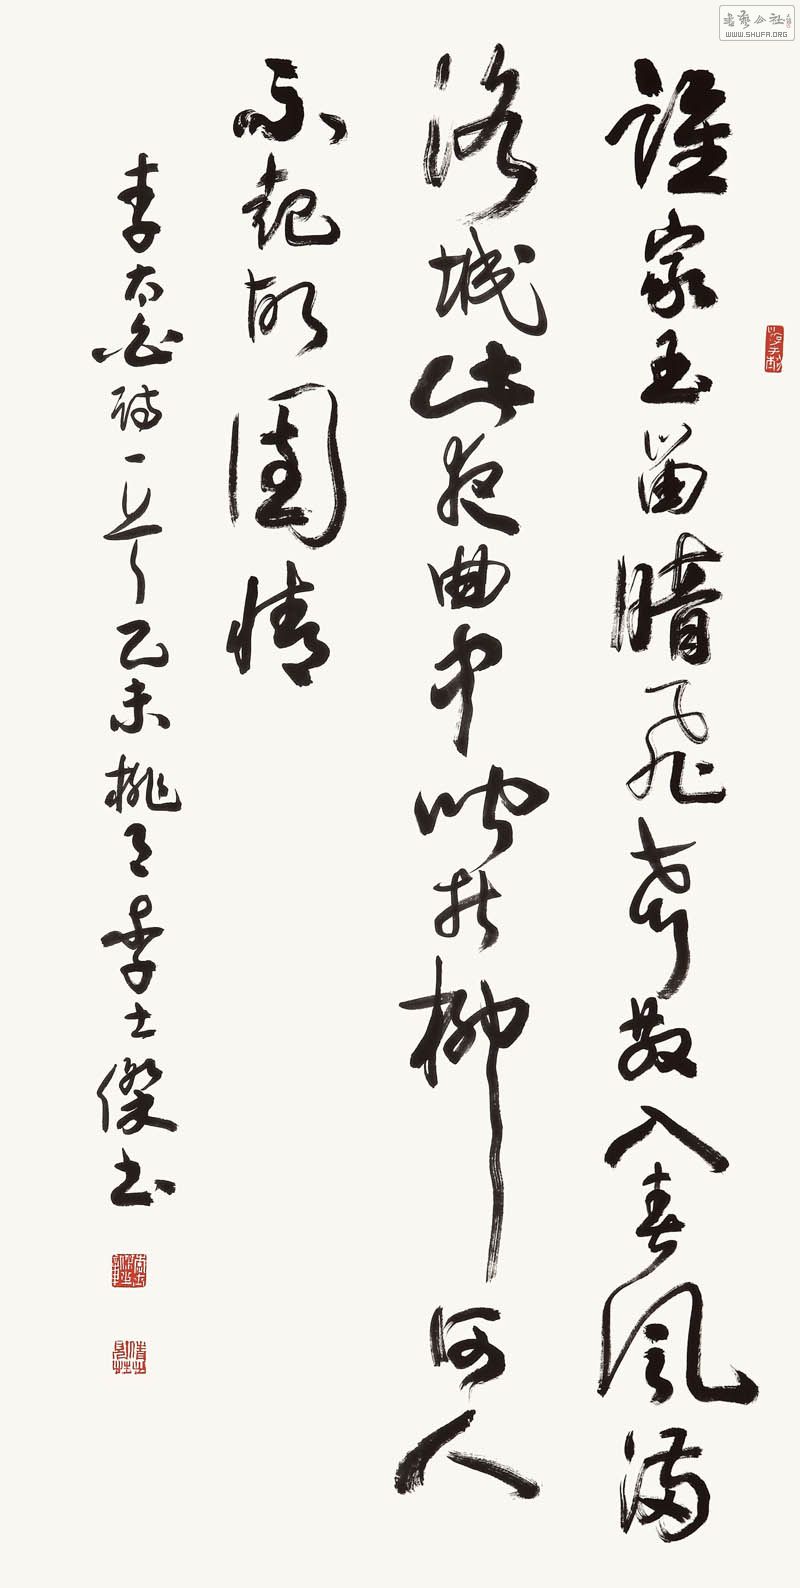 誰家玉笛暗飛聲散入春風滿
洛城此夜曲中聞折柳何人
不起故園情
李太白詩一首乙未桃月李士傑書
書藝公社
WWW.SHUFA.ORG